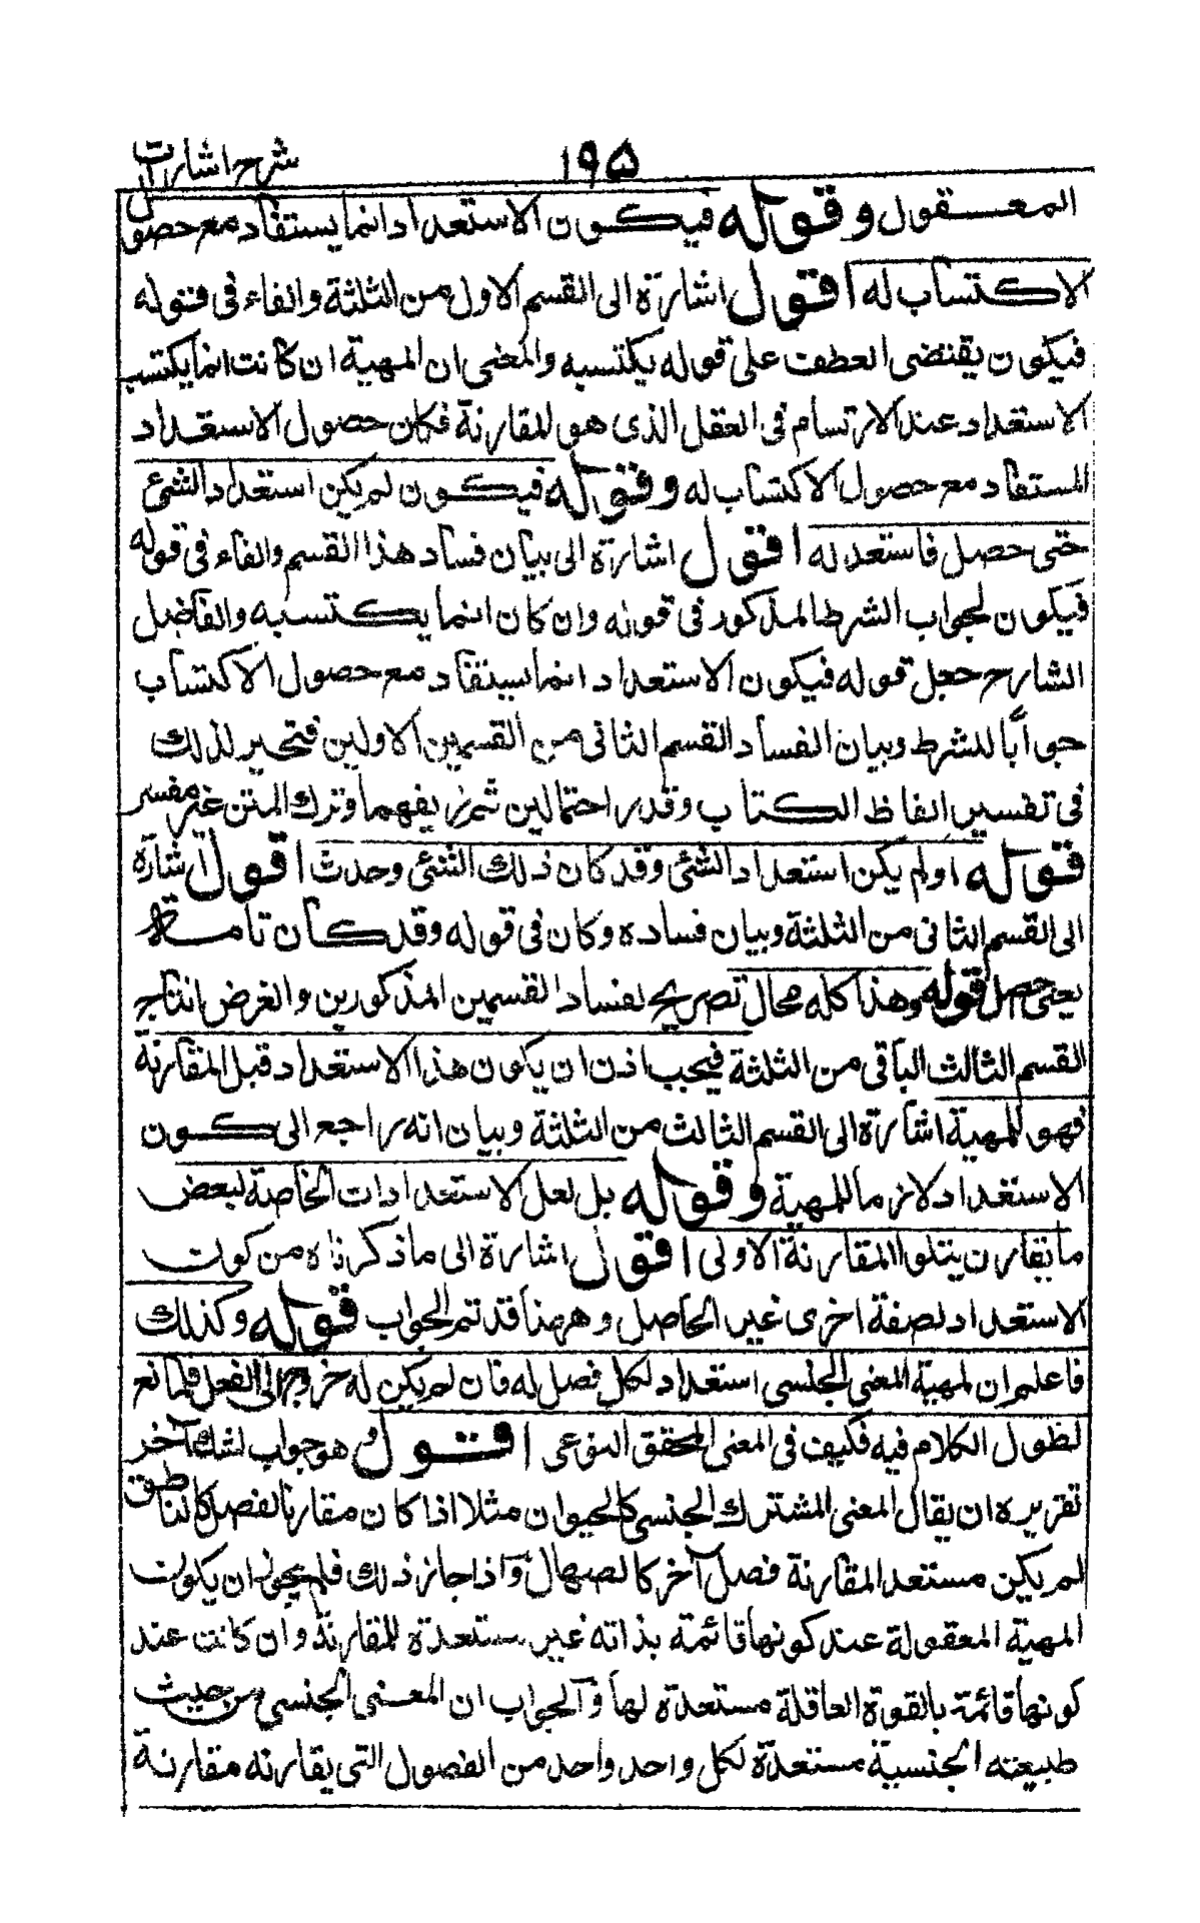 شرح اشارات
۱۹۵
المعقول وقوله فيكون الاستعداد انما يستفاد مع حصول
الاكتساب له اقول اشارة الى القسم الاول من الثلثة والفاء فى قوله
فيكون يقتضى العطف على قوله يكتسبه والمعنى ان المهية ان كانت انما يكتسب
الاستعداد عند الارتسام فى العقل الذى هو المقارنة فكان حصول الاستعداد
المستفاد مع حصول الاكتساب له وقوله فيكون لم يكن استعداد الشئ
حتى حصل فاستعد له اقول اشارة الى بيان فساد هذا القسم والفاء فى قوله
فيكون لجواب الشرط المذكور فى قوله وان كان انما يكتسبه والفاضل
الشارح جعل قوله فيكون الاستعداد انما يستفاد مع حصول الاكتساب
جوابا للشرط وبيان الفساد القسم الثانى من القسمين الاولين فتحير لذلك
فى تفسير الفاظ الكتاب وقدر احتمالين ثم زيفهما وترك المتن غير مفسر
قوله او لم يكن استعداد الشئ وقد كان ذلك الشئ وحدث اقول اشارة
الى القسم الثانى من الثلثة وبيان فساده وكان فى قوله وقد كان تامة
يعنى حصل قوله وهذا كله محال تصريح لفساد القسمين المذكورين والغرض انتاج
القسم الثالث الباقى من الثلثة فيجب اذن ان يكون هذا الاستعداد قبل المقارنة
فهو للمهية اشارة الى القسم الثالث من الثلثة وبيان انه راجع الى كون
الاستعداد لازما للمهية وقوله بل لعل الاستعدادات الخاصة لبعض
ما يقارن يتلوا المقارنة الاولى اقول اشارة الى ما ذكرناه من كون
الاستعداد لصفة اخرى غير الحاصل وههنا قد تم الجواب قوله وكذلك
فاعلم ان لمهية المعنى الجنسى استعداد لكل فصل له فان لم يكن له خروج الى الفعل فلمانع
لطول الكلام فيه فكيف فى المعنى المحقق النوعى اقول وهو جواب لشك آخر
تقريره ان يقال المعنى المشترك الجنسى كالحيوان مثلا اذا كان مقارنا لفصل كالناطق
لم يكن مستعد المقارنة فصل آخر كالصهال واذا جاز ذلك فلم يجوز ان يكون
المهية المعقولة عند كونها قائمة بذاته غير مستعدة للمقارنة وان كانت عند
كونها قائمة بالقوة العاقلة مستعدة لها والجواب ان المعنى الجنسى من حيث
طبيعته الجنسية مستعدة لكل واحد واحد من الفصول التى يقارنه مقارنة